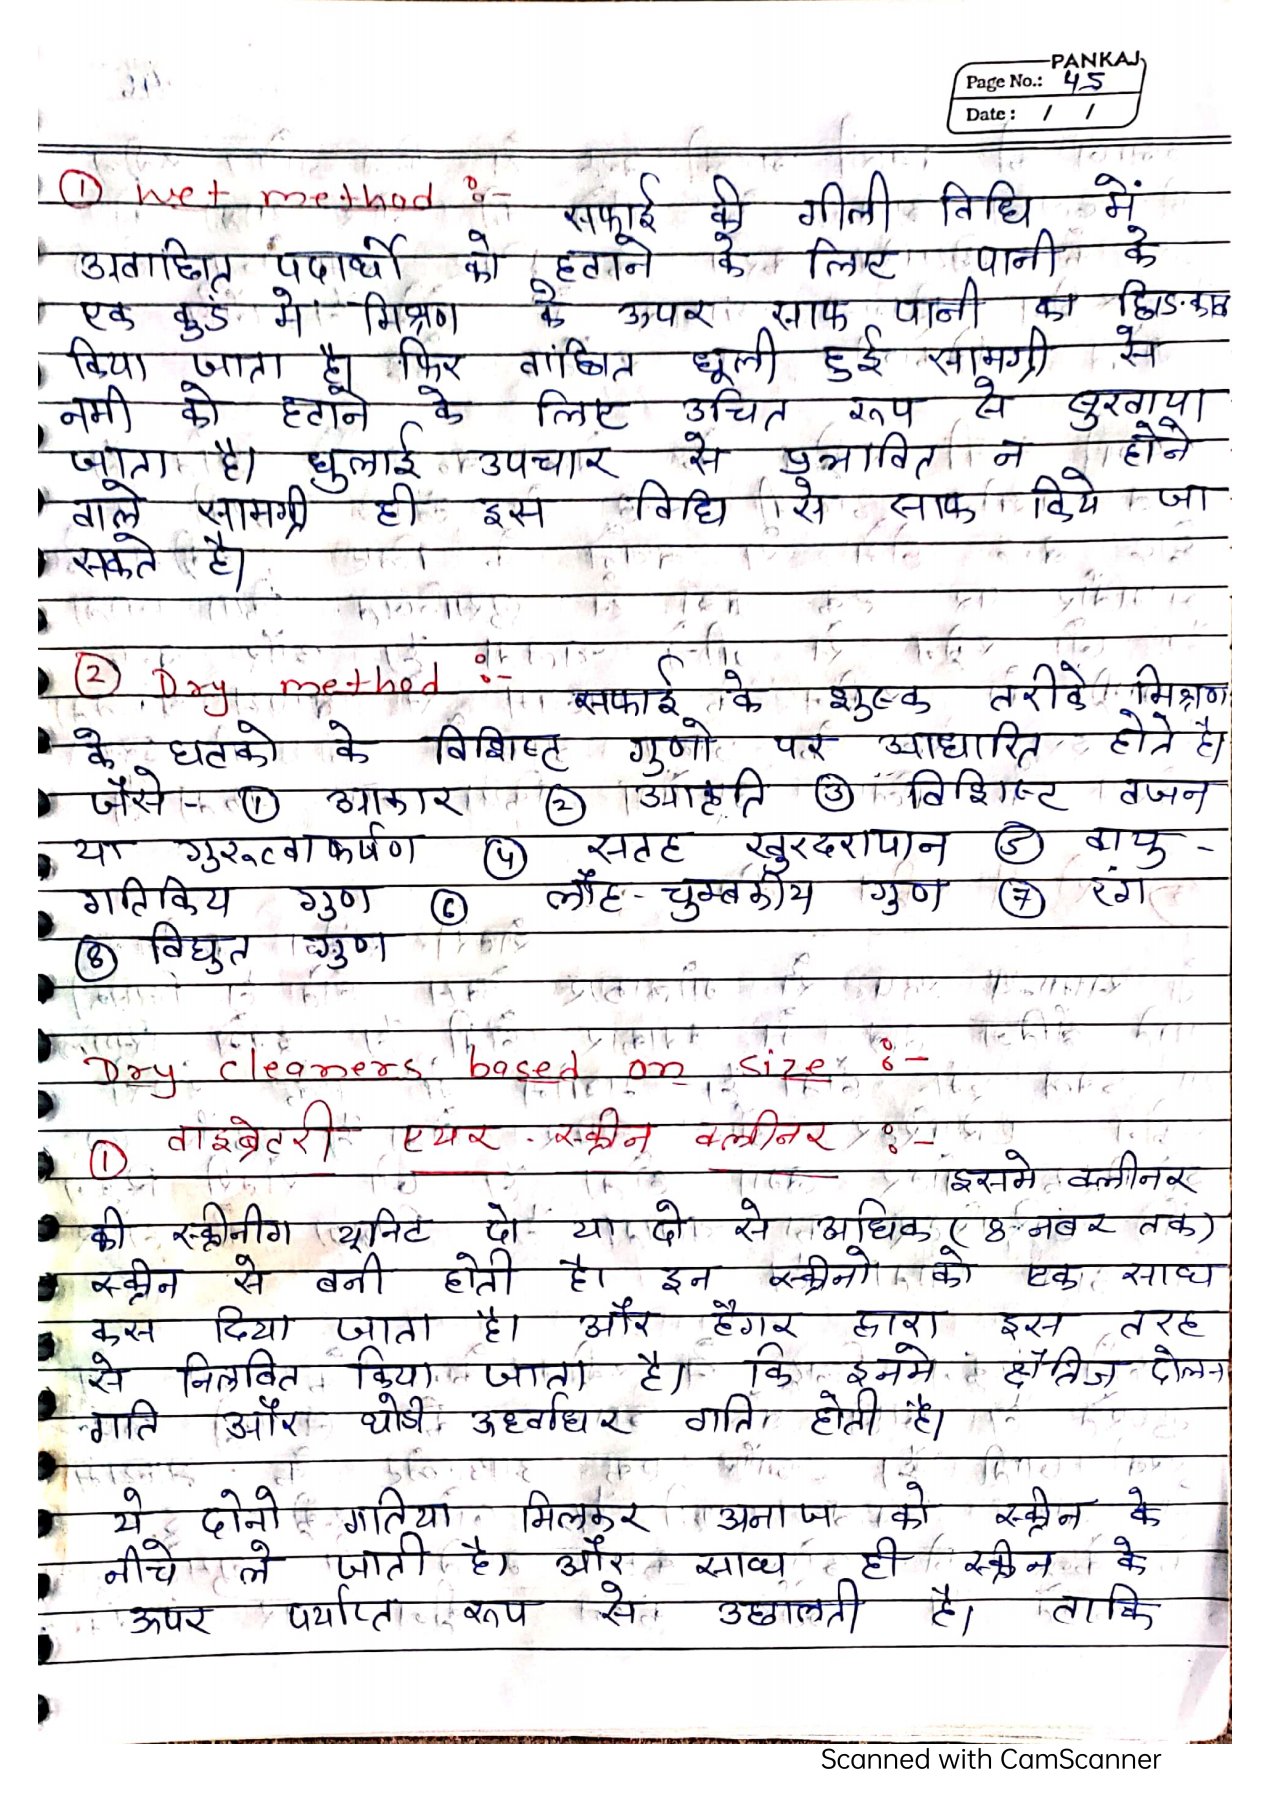 PANKAJ
Page No.: 45
Date : / /
① Wet method :- सफाई की गीली विधि में
अवाछित पदार्थो को हटाने के लिए पानी के
एक कुंड मे मिश्रण के ऊपर साफ पानी का छिड़काव
किया जाता है। फिर वांछित धूली हुई सामग्री से
नमी को हटाने के लिए उचित रूप से सुखाया
जाता है। धुलाई उपचार से प्रभावित न होने
वाले सामग्री ही इस विधि से साफ किये जा
सकते है।
② Dry method :- सफाई के शुष्क तरीके मिश्रण
के घटको के विशिष्ट गुणो पर आधारित होते है।
जैसे - ① आकार ② आकृति ③ विशिष्ट वजन
या गुरुत्वाकर्षण ④ सतह खुरदरापान ⑤ वायु -
गतिकिय गुण ⑥ लौह - चुम्बकीय गुण ⑦ रंग
⑧ विघुत गुण
Dry cleaners based on size :-
① वाइब्रेटरी एयर स्क्रीन क्लीनर :-
इसमे क्लीनर
की स्क्रीनीग यूनिट दो या दो से अधिक ( 8 नंबर तक)
स्क्रीन से बनी होती है। इन स्क्रीनो को एक साथ
कस दिया जाता है। और हैगर द्वारा इस तरह
से निलंबित किया जाता है। कि इनमे क्षैतिज दोलन
गति और थोडी उर्ध्वाधर गति होती है।
ये दोनो गतिया मिलकर अनाज को स्क्रीन के
नीचे ले जाती है। और साथ ही स्क्रीन के
ऊपर पर्याप्त रूप से उछालती है। ताकि
Scanned with CamScanner